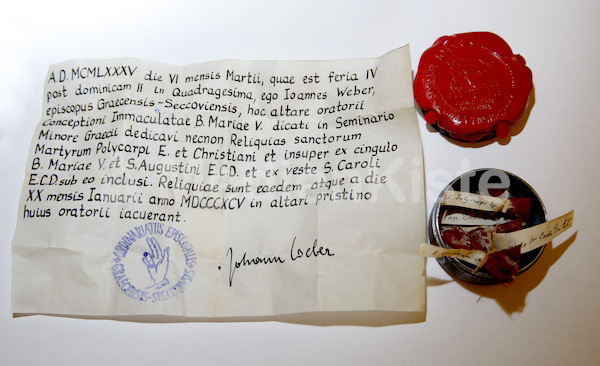 A.D. MCMLXXXV die VI mensis Martii, quae est feria IV
post dominicam II in Quadragesima, ego Ioannes Weber,
episcopus Graecensis-Seccoviensis, hoc altare oratorii
conceptioni Immaculatae B. Mariae V. dicati in Seminario
Minore Graecii dedicavi necnon Reliquias sanctorum
Martyrum Polycarpi E. et Christiani et insuper ex cingulo
B. Mariae V. et S. Augustini E.C.D. et ex veste S. Caroli
E.C.D. sub eo inclusi. Reliquiae sunt eaedem, atque a die
XX mensis Ianuarii anno MDCCCXCV in altari pristino
huius oratorii iacuerant.
ORDINARIATUS EPISCOPALIS
GRAECENSIS-SECCOVIENSIS
Johann Weber
Kiste